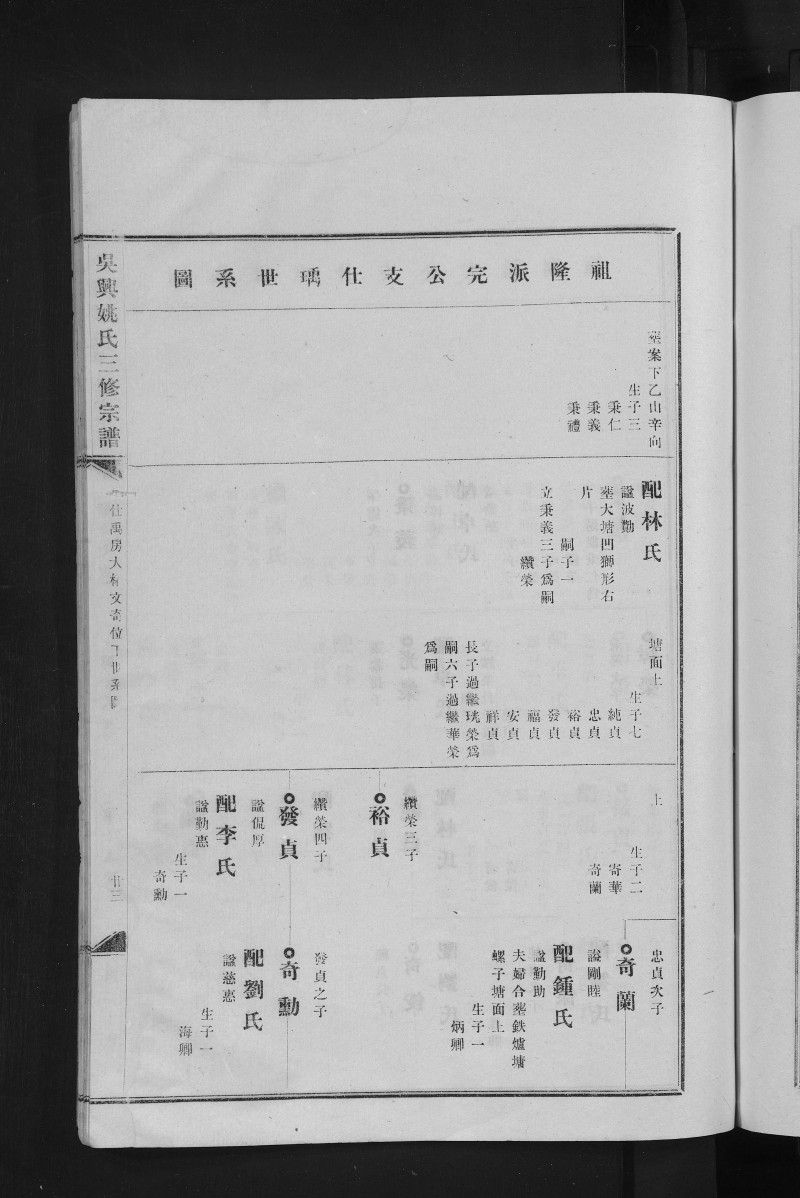 祖隆派完公支仕瑀世系圖
塟案下乙山辛向
生子三
秉仁
秉義
秉禮
配林氏
諡波勤
塟大塘凹獅形右
片
嗣子一
立秉義三子爲嗣
纘榮
塘面上
生子七
純貞
忠貞
裕貞
發貞
福貞
安貞
祥貞
長子過繼珖榮爲
嗣六子過繼華榮
爲嗣
上
生子二
寄華
奇蘭
纘榮三子
裕貞
纘榮四子
發貞
諡侃厚
配李氏
諡勤惠
生子一
奇勳
忠貞次子
奇蘭
諡剛睦
配鍾氏
諡勤助
夫婦合塟鉄爐墉
螺子塘面上
生子一
炳卿
發貞之子
奇勳
配劉氏
諡慈惠
生子一
海卿
吳興姚氏三修宗譜
廿三